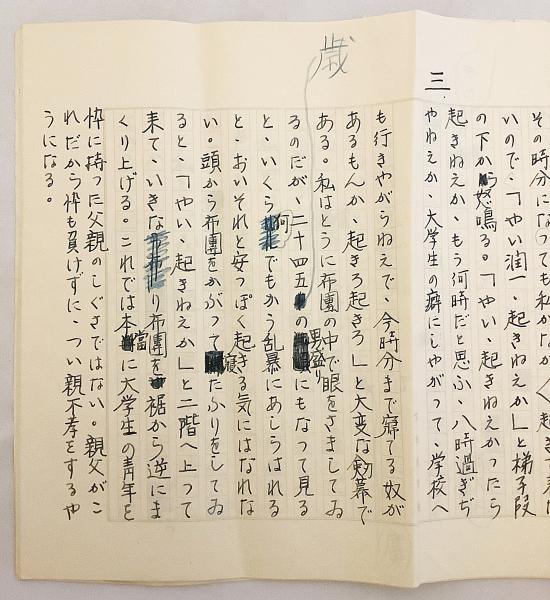 その時分になっても私がなかく起き
いので、「やい潤一、起きねえか」と梯子段
の下から怒鳴る。「やい、起きねえかったら
起きねえか、もう何時だと思ふ、八時過ぎぢ
やねえか、大学生の癖にしやがって、学校へ
三
も行きやがらねえで、今時分まで寐てる奴が
あるもんか、起きろ起きろ」と大変な剣幕で
ある。私はとうに布團の中で眼をさましてゐ
るのだが、二十四五歳の男盛りにもなって見る
と、いくら何でもかう乱暴にあしらはれる
と、おいそれと安っぽく起きる気にはなれな
い。頭から布團をかぶって寢たふりをしてゐ
ると、「やい、起きねえか」と二階へ上って
来て、いきなり布團を裾から逆にま
くり上げる。これでは本當に大学生の青年を
忰に持った父親のしぐさではない。親父がこ
れだから忰も負けずに、つい親不孝をするや
うになる。